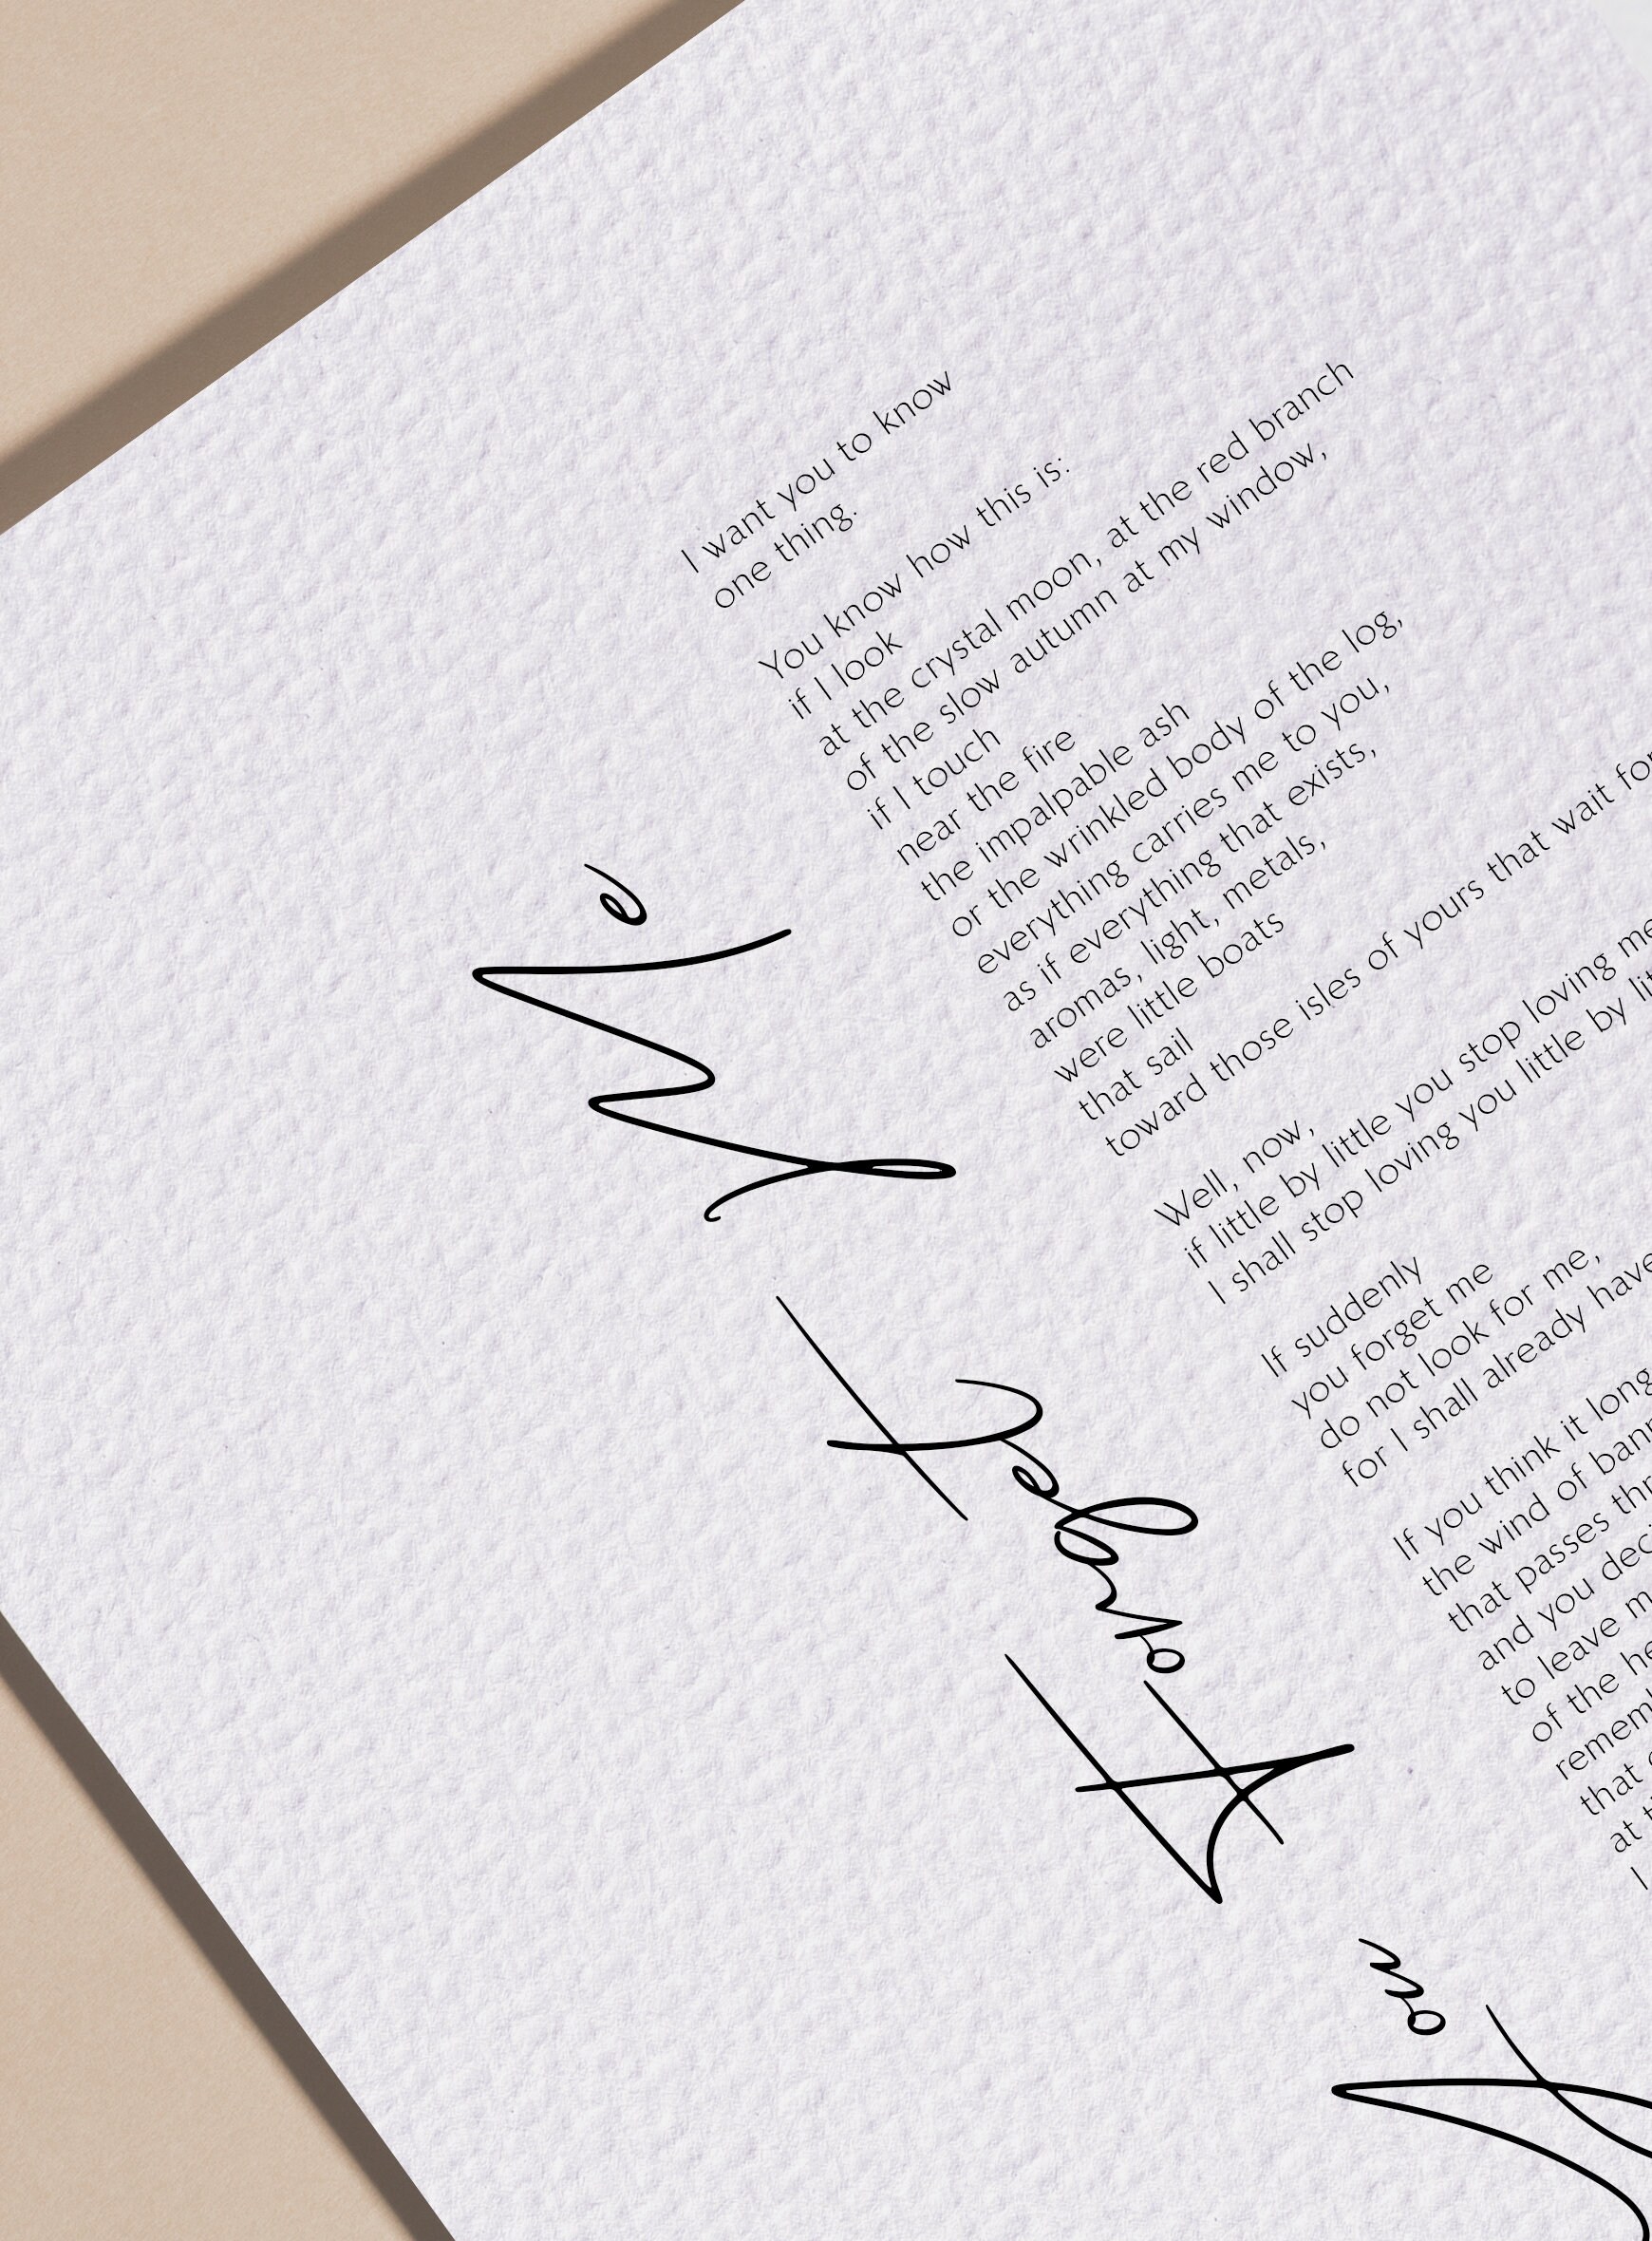 You Forget Me
I want you to know
one thing.
You know how this is:
if I look
at the crystal moon, at the red branch
of the slow autumn at my window,
if I touch
near the fire
the impalpable ash
or the wrinkled body of the log,
everything carries me to you,
as if everything that exists,
aromas, light, metals,
were little boats
that sail
toward those isles of yours that wait for
Well, now,
if little by little you stop loving me
I shall stop loving you little by
If suddenly
you forget me
do not look for me,
for I shall already have
If you think it long
the wind of
that passes
and you
to leave
of the
that
at
I